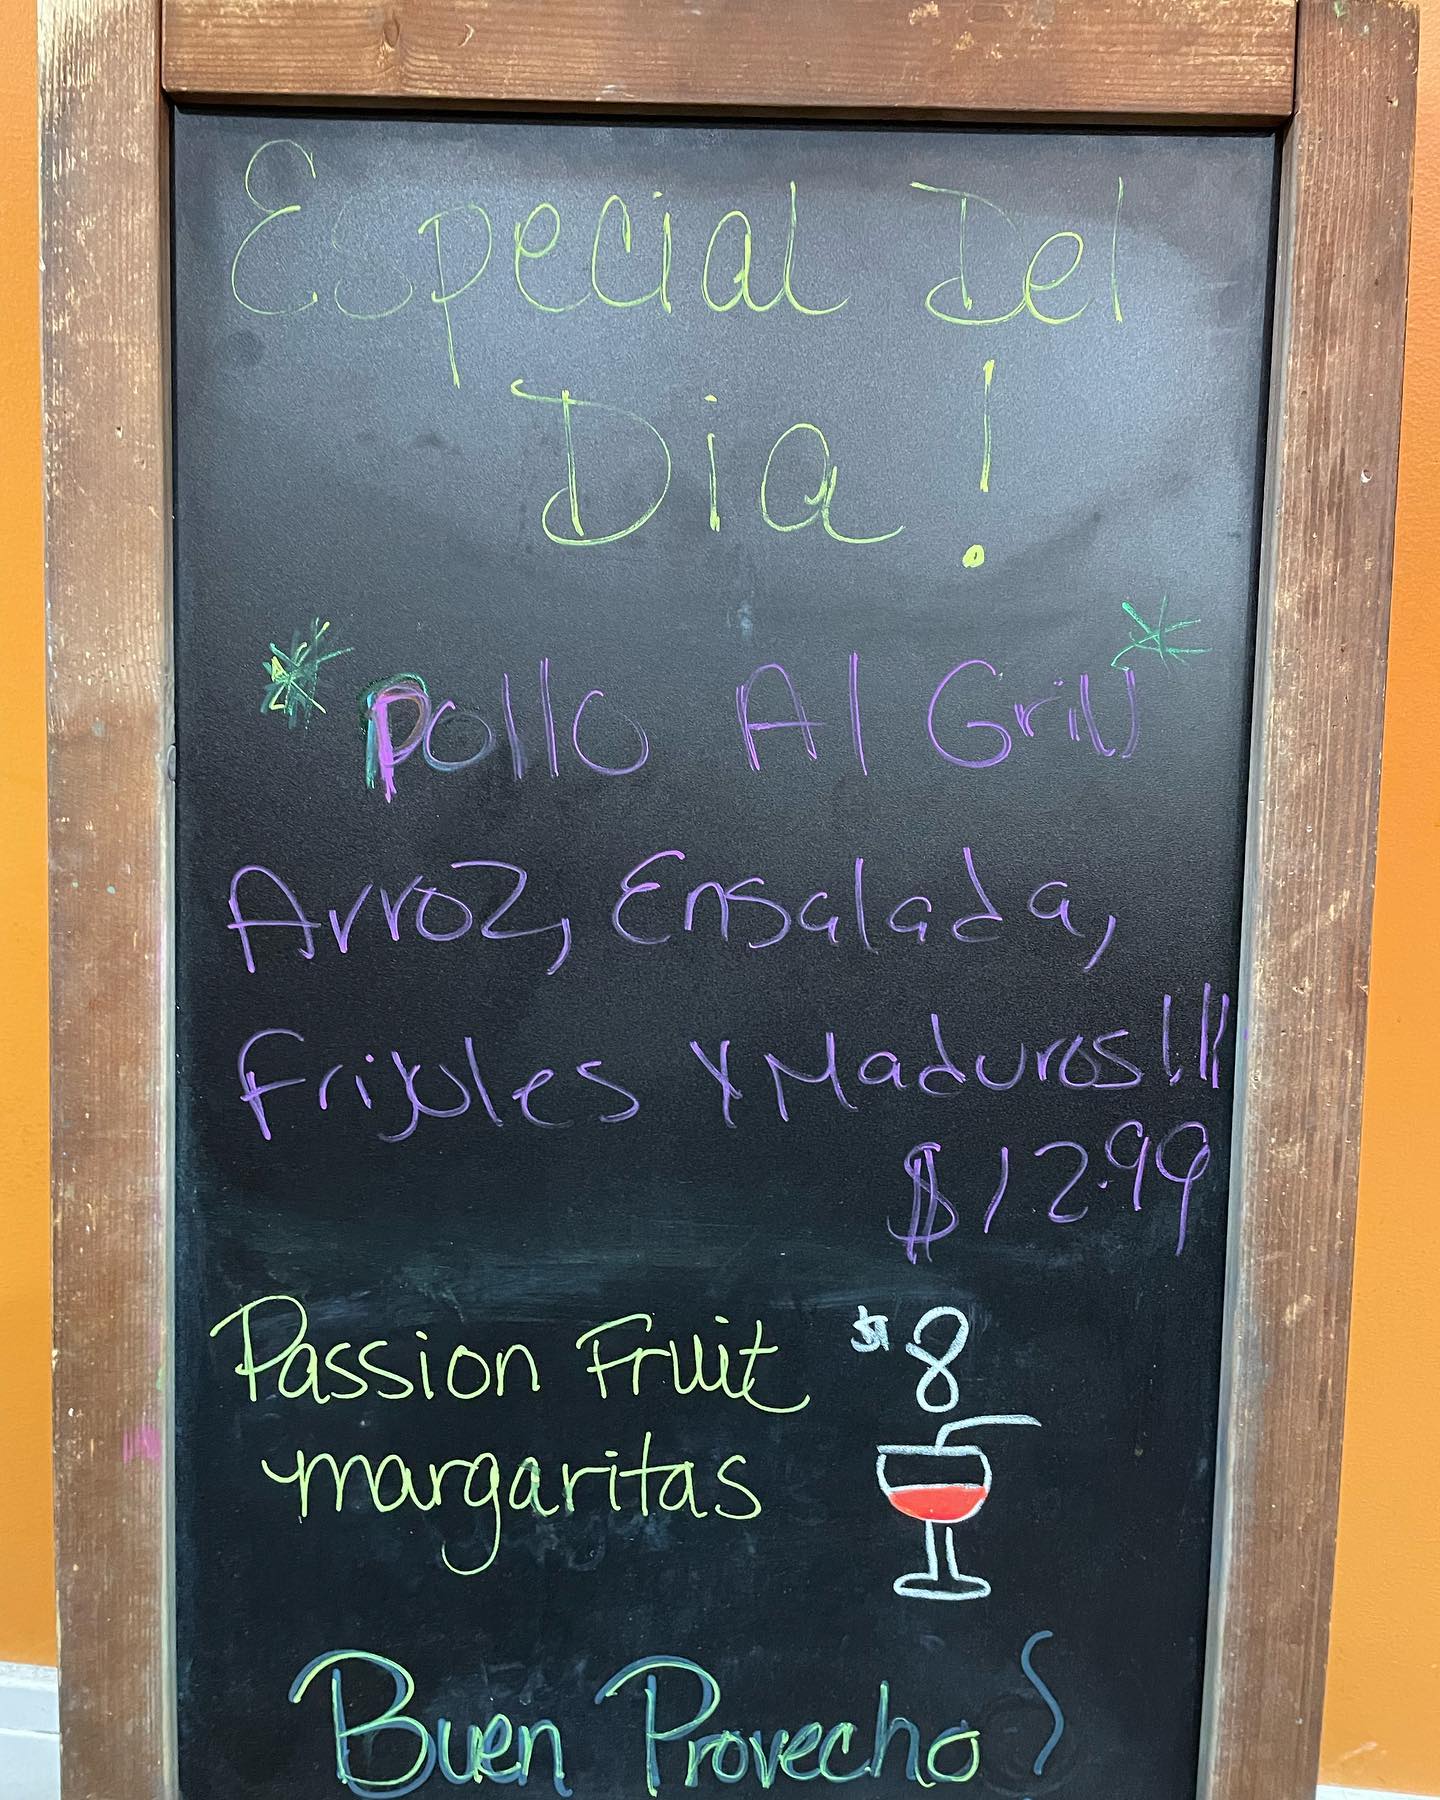 Especial Del
Dia!
* Pollo Al Grill *
Arroz, Ensalada,
Frijoles Y Maduros!!!
$12.99
Passion Fruit $8
margaritas
Buen Provecho!